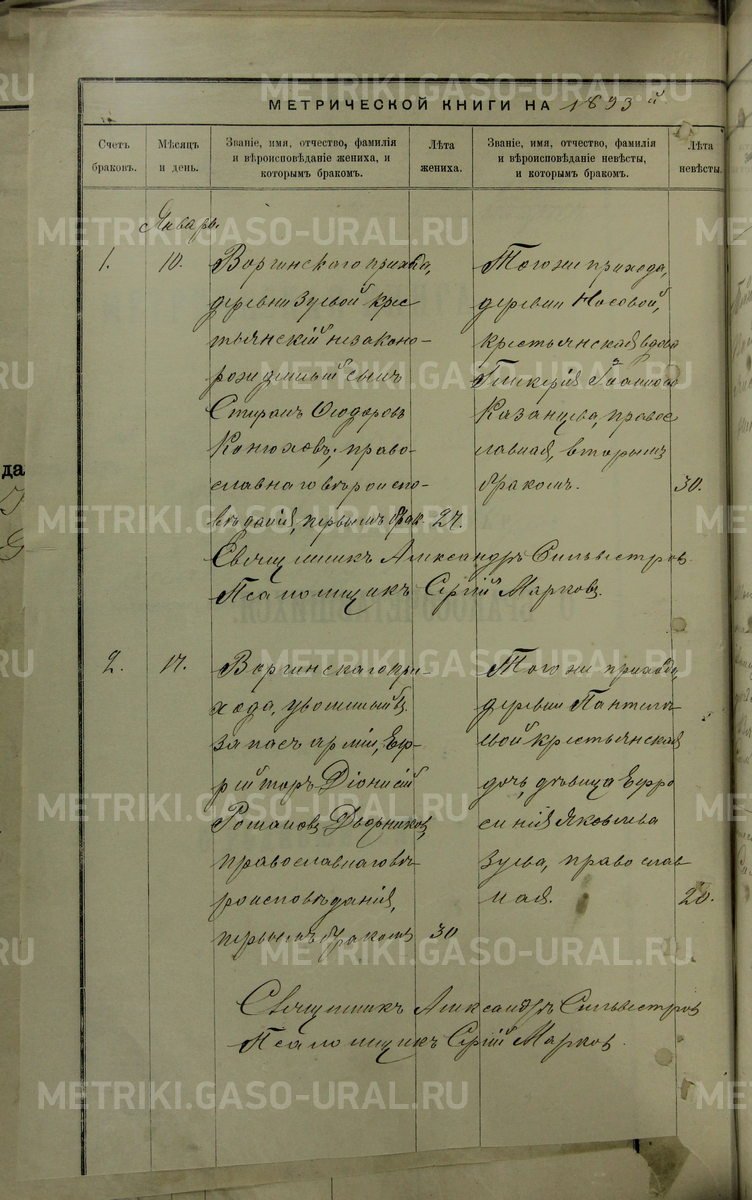 МЕТРИЧЕСКОЙ КНИГИ НА 1893й
Счетъ браковъ.
Мѣсяцъ и день.
Званіе, имя, отчество, фамилія и вѣроисповѣданіе жениха, и которымъ бракомъ.
Лѣта жениха.
Званіе, имя, отчество, фамилія и вѣроисповѣданіе невѣсты, и которымъ бракомъ.
Лѣта невѣсты.
Январь.
1. 10.
Воргинскаго прихода,
деревни Зуевой крес
тьянскій незаконо-
рожденный сынъ
Стиранъ Ѳеодоровъ
Конюховъ, право-
славнаго вѣроиспо-
вѣданія, первымъ брак. 24.
Того же прихода,
деревни Носовой,
крестьянская вдова
Гликерія Іоаннова
Казанцева, правос
лавная, вторымъ
бракомъ. 30.
Священникъ Александръ Сильвестров
Псаломщикъ Сергій Марковъ.
2. 17.
Воргинскаго при-
хода, уволенный въ
запасъ арміи, Еф-
рейторъ Діонисій
Романовъ Дворников,
православнаго вѣ-
роисповѣданія,
первымъ бракомъ 30
Того же прихода,
деревни Пантеле
евой крестьянская
дочь, дѣвица Евфро
синія Яковлева
Зуева, православ
ная. 20.
Священникъ Александръ Сильвестров
Псаломщикъ Сергій Марков.
да
METRIKI.GASO-URAL.RU